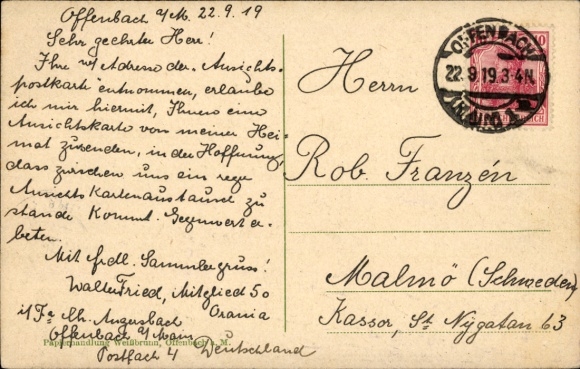 Offenbach a/M. 22.9.19
Sehr geehrter Herr!
Ihre w/Adresse der „Ansichts-
postkarte" entnommen, erlaube
ich mir hiermit, Ihnen eine
Ansichtskarte von meiner Hei-
mat zusenden, in der Hoffnung,
dass zwischen uns ein rege
Ansichtskartenaustausch zu
stande kommt. Gegenwert er-
beten.
Mit frdl. Sammlergruss!
Walter Fried, Mitglied 50
Orania
i/Fa Ch. Augersbach
Offenbach a/Main
Postfach 4 Deutschland
Papierhandlung Weißbrunn, Offenbach a. M.
OFFENBACH
22.9.19.3-4N.
(MAIN)
10
REICH
Herrn
Rob. Franzén
Malmö (Schweden)
Kassör, St Nygatan 63